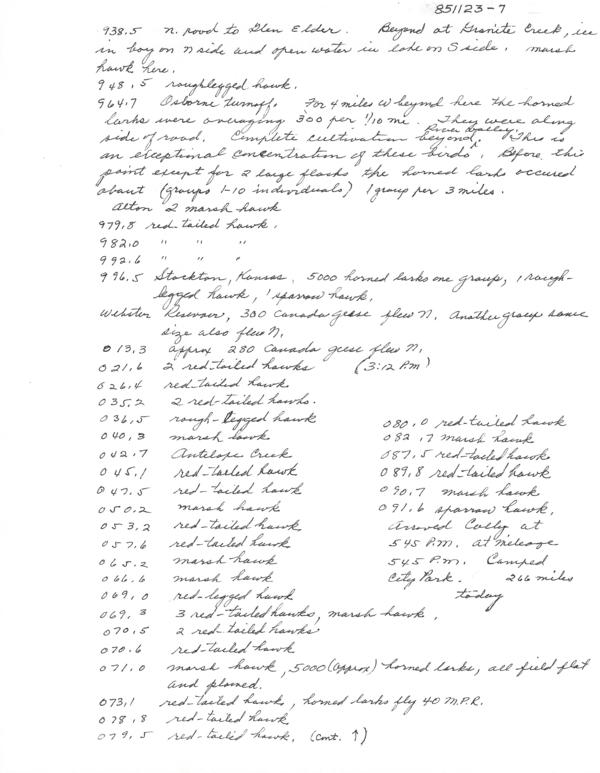 851123-7
938.5 n. road to Glen Elder. Beyond at Granite Creek, ice
in bay on n side and open water in lake on S side. marsh
hawk here.
948.5 roughlegged hawk.
964.7 Osborne turnoff. For 4 miles W beyond here the horned
larks were averaging 300 per 1/10 mi. They were along
side of road. Complete cultivation beyond river valley. This is
an exceptional concentration of these birds. Before this
point except for 2 large flocks the horned larks occured
about (groups 1-10 individuals) 1 group per 3 miles.
Alton 2 marsh hawk
979.8 red-tailed hawk.
982.0 " " "
992.6 " " "
996.5 Stockton, Kansas, 5000 horned larks one group, 1 rough-
legged hawk, 1 sparrow hawk.
Webster Reservoir, 300 Canada geese flew N. Another group same
size also flew N.
013.3 approx 280 Canada geese flew N.
021.6 2 red-tailed hawks (3:12 P.m)
026.4 red-tailed hawk
035.2 2 red-tailed hawks.
036.5 rough-legged hawk
040.3 marsh hawk
042.7 Antelope Creek
045.1 red-tailed hawk
047.5 red-tailed hawk
050.2 marsh hawk
053.2 red-tailed hawk
057.6 red-tailed hawk
065.2 marsh hawk
066.6 marsh hawk
069.0 red-legged hawk
069.3 3 red-tailed hawks, marsh hawk.
070.5 2 red-tailed hawks
070.6 red-tailed hawk
071.0 marsh hawk, 5000 (approx) horned larks, all field flat
and plowed.
073.1 red-tailed hawks, horned larks fly 40 M.P.R.
078.8 red-tailed hawk
079.5 red-tailed hawk. (cont. ↑)
080.0 red-tailed hawk
082.7 marsh hawk
087.5 red-tailed hawk
089.8 red-tailed hawk
090.7 marsh hawk
091.6 sparrow hawk.
Arrived Colby at
545 P.M. at mileage
545 P.m. Camped
City Park. 266 miles
today